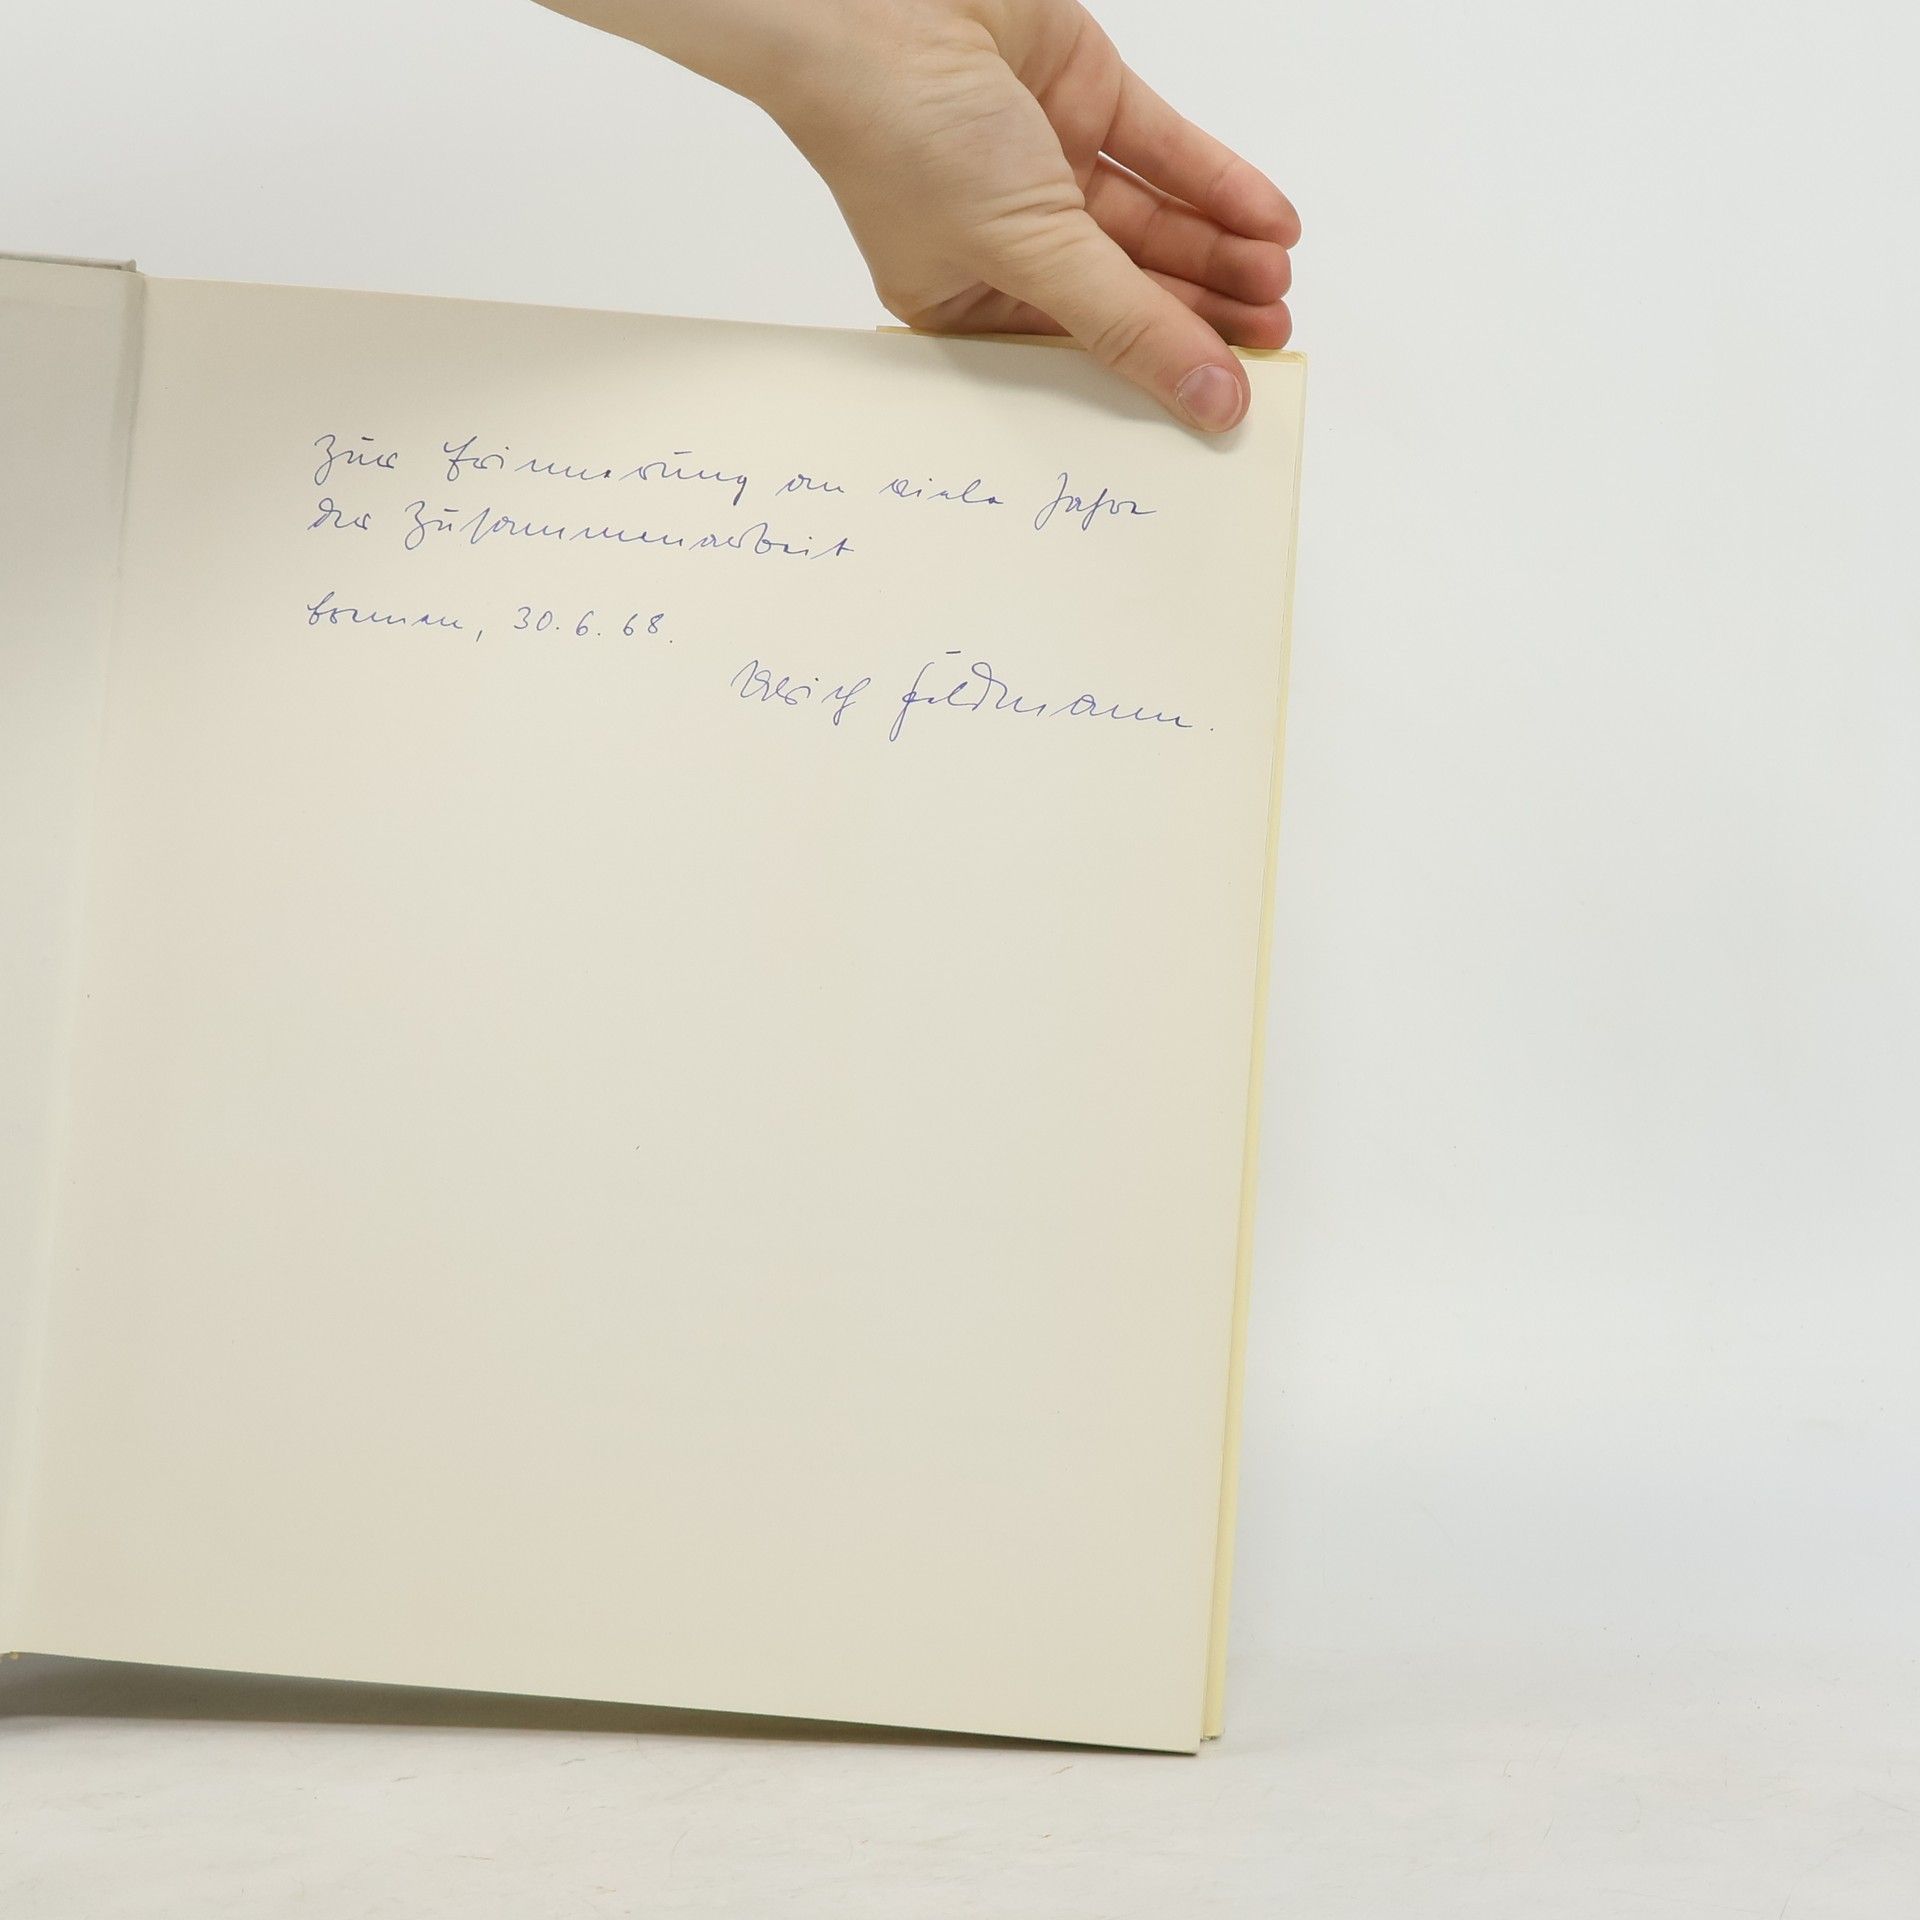 Zur Erinnerung an viele Jahre
der Zusammenarbeit
Bremen, 30.6.68.
Ulrich Feldmann.